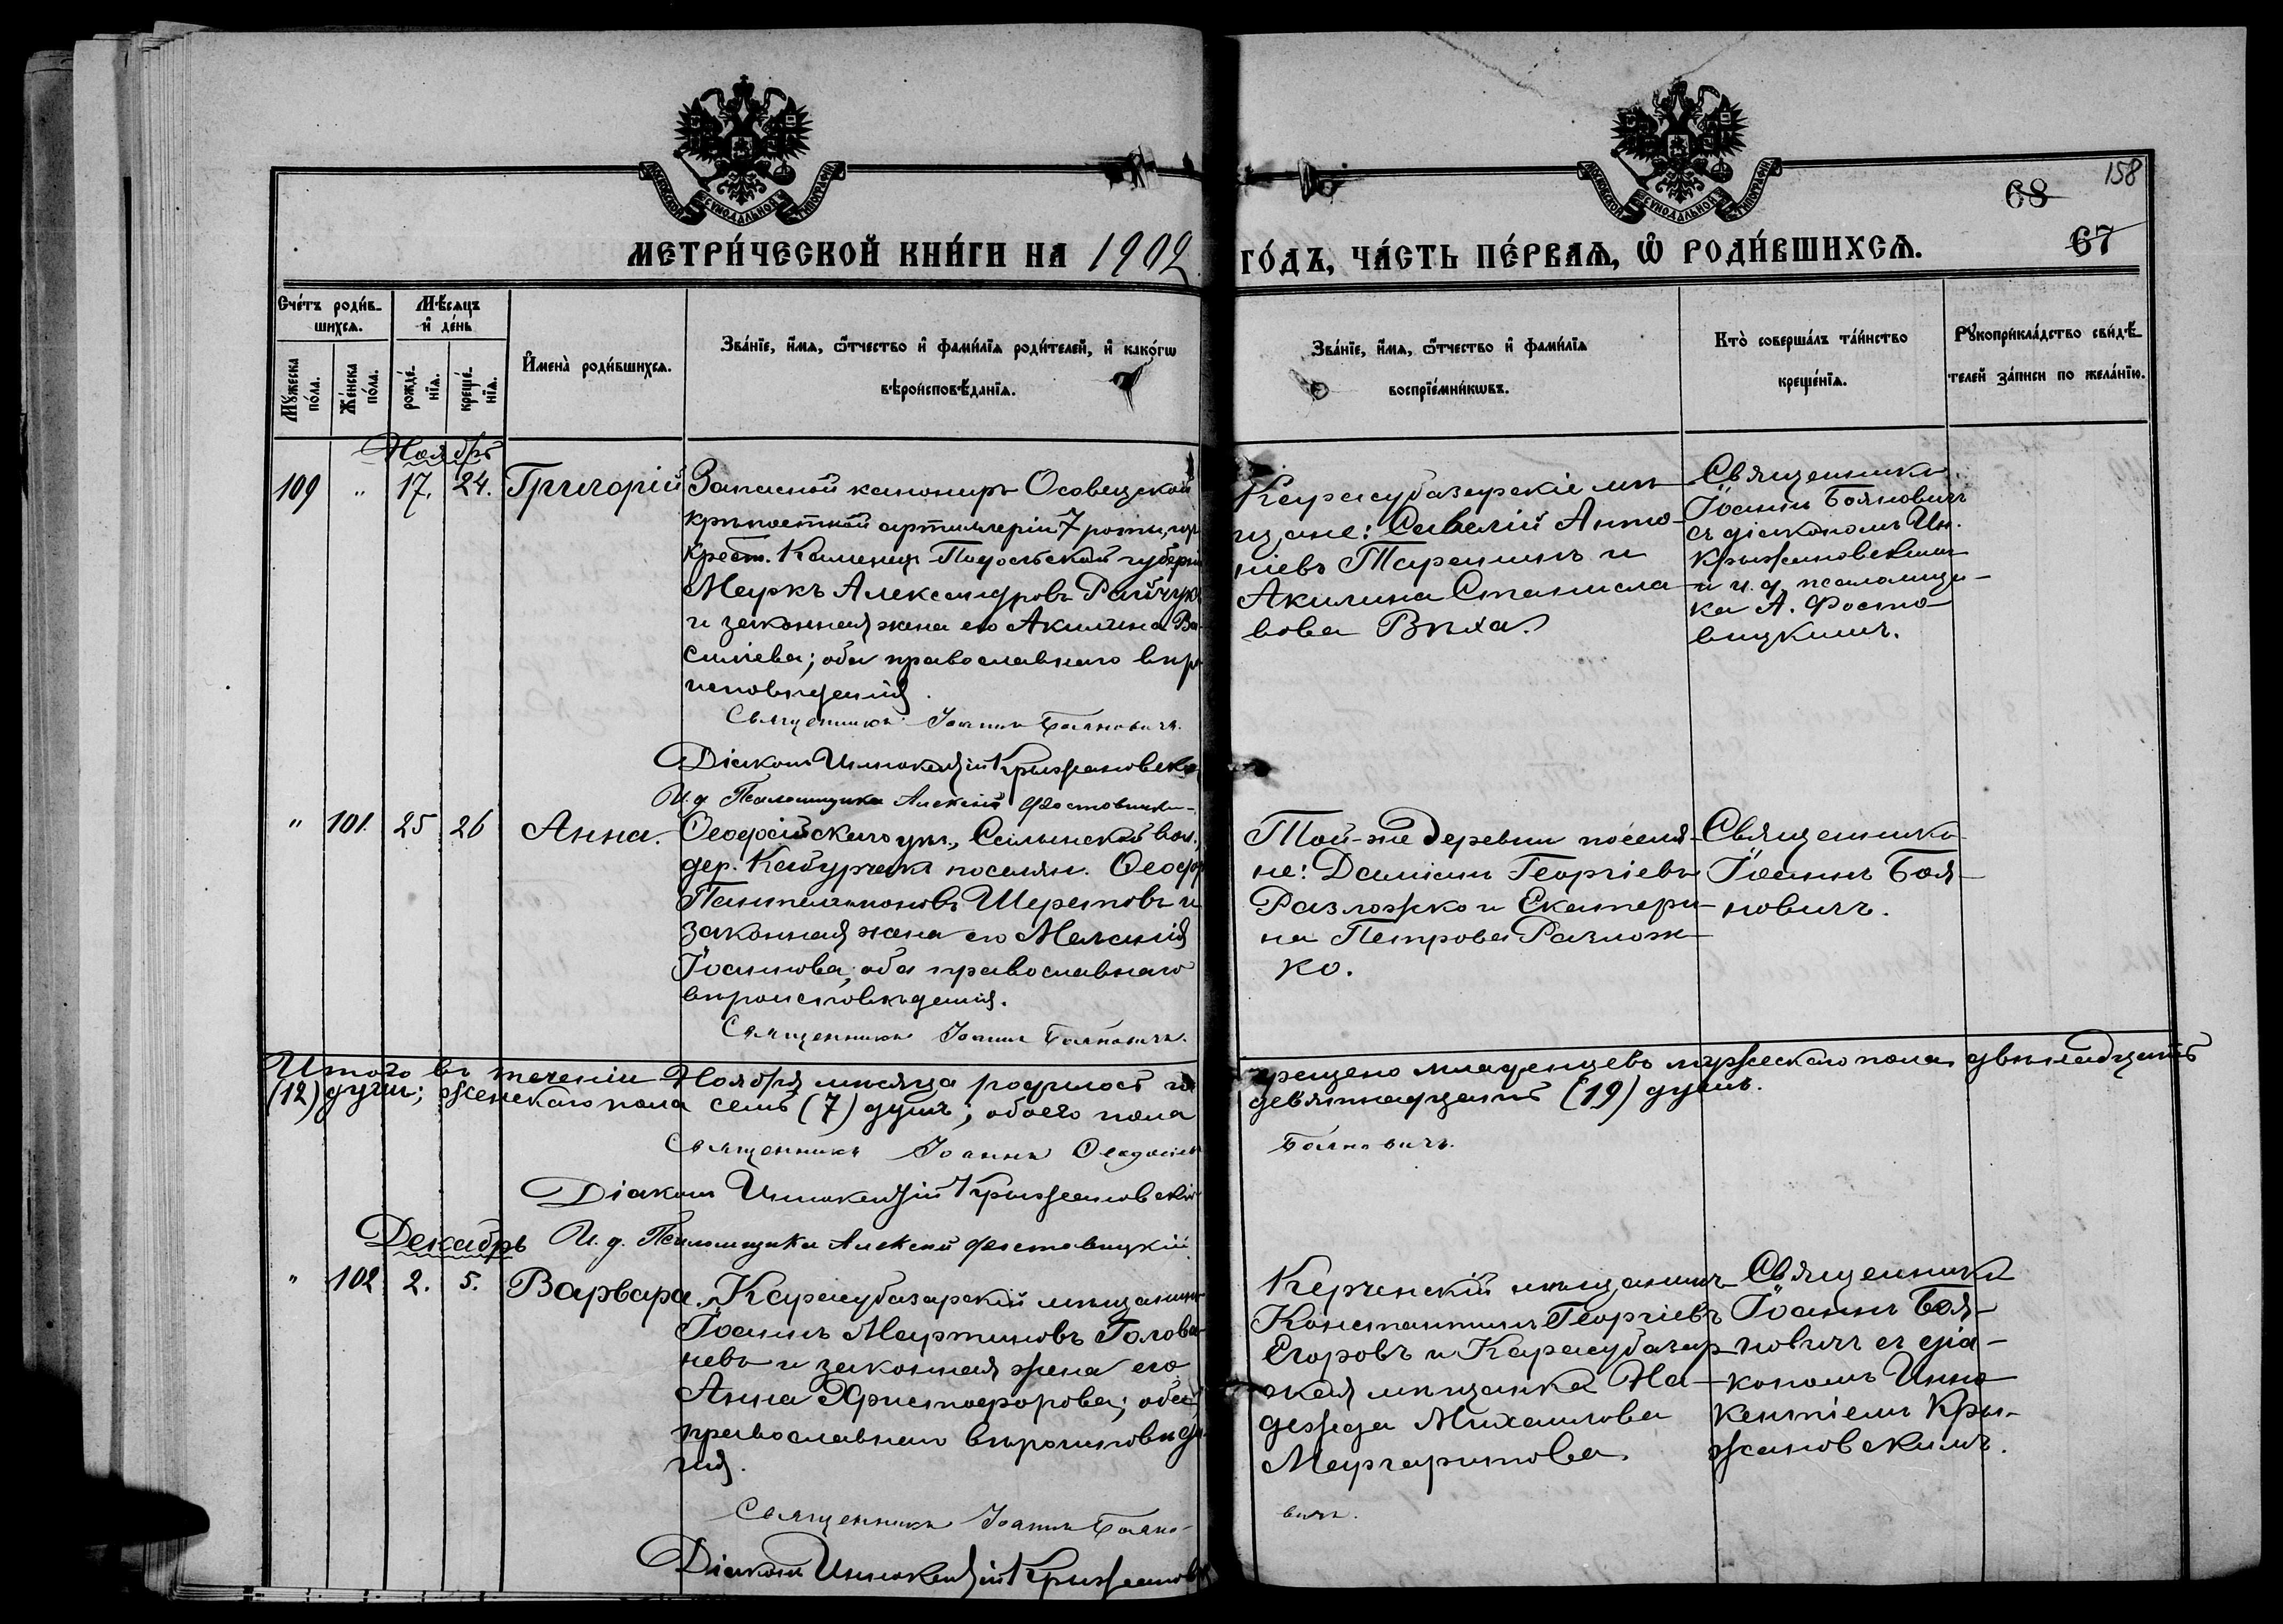 МОСКОВСКОЙ СУНОДАЛЬНОЙ ТИПОГРАФІИ
МОСКОВСКОЙ СУНОДАЛЬНОЙ ТИПОГРАФІИ
158
68
67
МЕТРИ́ЧЕСКОЙ КНИ́ГИ НА 1902 ГО́ДЪ, ЧА́СТЬ ПЕ́РВАѦ, Ѡ РОДИ́ВШИХСѦ.
Сче́тъ роди́в-
шихсѧ.
Мꙋ́жеска по́ла.
Же́нска по́ла.
Мѣ́сѧцъ
и҆ де́нь
рожде́-нїѧ.
креще́-нїѧ.
И҆мена̀ роди́вшихсѧ.
Зва́нїе, и҆́мѧ, ѻ҆́тчество и҆ фами́лїѧ роди́телей, и҆ како́гѡ
вѣроисповѣ́данїѧ.
Зва́нїе, и҆́мѧ, ѻ҆́тчество и҆ фами́лїѧ
воспрїе́мникѡвъ.
Кто̀ соверша́лъ та́инство
креще́нїѧ.
Рꙋкоприкла́дство свидѣ́-
телей за́писи по жела́нїю.
Ноябрь
109 " 17. 24. Григорій
Запасной канониръ Осовецкой
крѣпостной артиллеріи 7 роты, изъ
крест. Каменец Подольской губерніи
Маркъ Александровъ Райчукъ
и законная жена его Акилина Ва-
силіева; оба православнаго вѣро
исповѣданія.
Священникъ Іоаннъ Бояновичъ.
Діаконъ Иннокентій Крыжановскі
И. д. Псаломщика Алексій Фостовицкі-
Карасубазарскіе мѣ-
щане: Савелій Анто-
ніевъ Таранинъ и
Акилина Станисла-
вова Вѣха.
Священникъ
Іоаннъ Бояновичъ
съ діакономъ Ин.
Крыжановскимъ
и и. д. псаломщи-
ка А. Фосто-
вицкимъ.
" 101. 25 26 Анна.
Ѳеодосійскаго уѣз., Салынской вол.,
дер. Кабурчака поселян. Ѳеодор
Пантелеимоновъ Шереповъ и
законная жена его Меланія
Іоаннова, оба православнаго
вѣроисповѣданія.
Священникъ Іоаннъ Бояновичъ.
Той-же деревни поселя-
не: Даміанъ Георгіевъ
Разложко и Екатери-
на Петрова Разлож-
ко.
Священникъ
Іоаннъ Боя-
новичъ.
Итого въ теченіи Ноября мѣсяца родилось и крещено младенцевъ мужескаго пола двѣнадцать
(12) душъ; женскаго пола семь (7) душъ, обоего пола девятнадцать (19) душъ.
Священникъ Іоаннъ Ѳеодосіевъ Бояновичъ.
Діаконъ Иннокентій Крыжановскій
И. д. Псаломщика Алексій Фостовицкій.
Декабрь
" 102. 2. 5. Варвара.
Карасубазарскій мѣщанинъ
Іоаннъ Мартиновъ Голова-
невъ и законная жена его
Анна Христофорова; оба
православнаго вѣроисповѣда-
нія.
Священникъ Іоаннъ Бояно-
вичъ.
Діаконъ Иннокентій Крыжанов
Керченскій мѣщанинъ
Константинъ Георгіевъ
Егоровъ и Карасубазар-
ская мѣщанка На-
дежда Михаилова
Маргаритова.
Священникъ
Іоаннъ Боя-
новичъ съ діа-
кономъ Инно-
кентіемъ Кры-
жановскимъ.